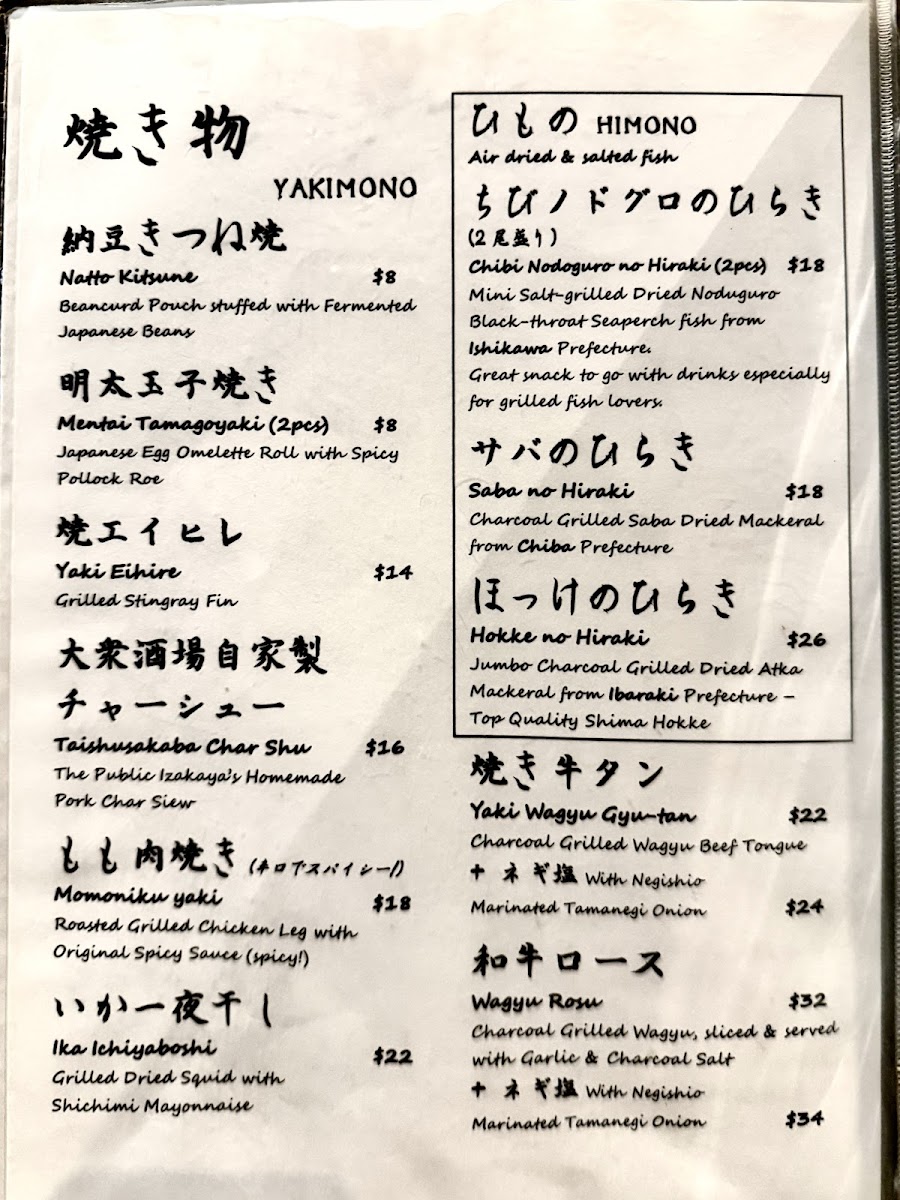 焼き物
YAKIMONO
納豆きつね焼
Natto Kitsune $8
Beancurd Pouch stuffed with Fermented
Japanese Beans
明太玉子焼き
Mentai Tamagoyaki (2pcs) $8
Japanese Egg Omelette Roll with Spicy
Pollock Roe
焼エイヒレ
Yaki Eihire $14
Grilled Stingray Fin
大衆酒場自家製
チャーシュー
Taishusakaba Char Shu $16
The Public Izakaya's Homemade
Pork Char Siew
もも肉焼き (辛口でスパイシー!)
Momoniku yaki $18
Roasted Grilled Chicken Leg with
Original Spicy Sauce (spicy!)
いか一夜干し
Ika Ichiyaboshi $22
Grilled Dried Squid with
Shichimi Mayonnaise
ひもの HIMONO
Air dried & salted fish
ちびノドグロのひらき
(2尾盛り)
Chibi Nodoguro no Hiraki (2pcs) $18
Mini Salt-grilled Dried Noduguro
Black-throat Seaperch fish from
Ishikawa Prefecture.
Great snack to go with drinks especially
for grilled fish lovers.
サバのひらき
Saba no Hiraki $18
Charcoal Grilled Saba Dried Mackeral
from Chiba Prefecture
ほっけのひらき
Hokke no Hiraki $26
Jumbo Charcoal Grilled Dried Atka
Mackeral from Ibaraki Prefecture –
Top Quality Shima Hokke
焼き牛タン
Yaki Wagyu Gyu-tan $22
Charcoal Grilled Wagyu Beef Tongue
+ ネギ塩 With Negishio
Marinated Tamanegi Onion $24
和牛ロース
Wagyu Rosu $32
Charcoal Grilled Wagyu, sliced & served
with Garlic & Charcoal Salt
+ ネギ塩 With Negishio
Marinated Tamanegi Onion $34